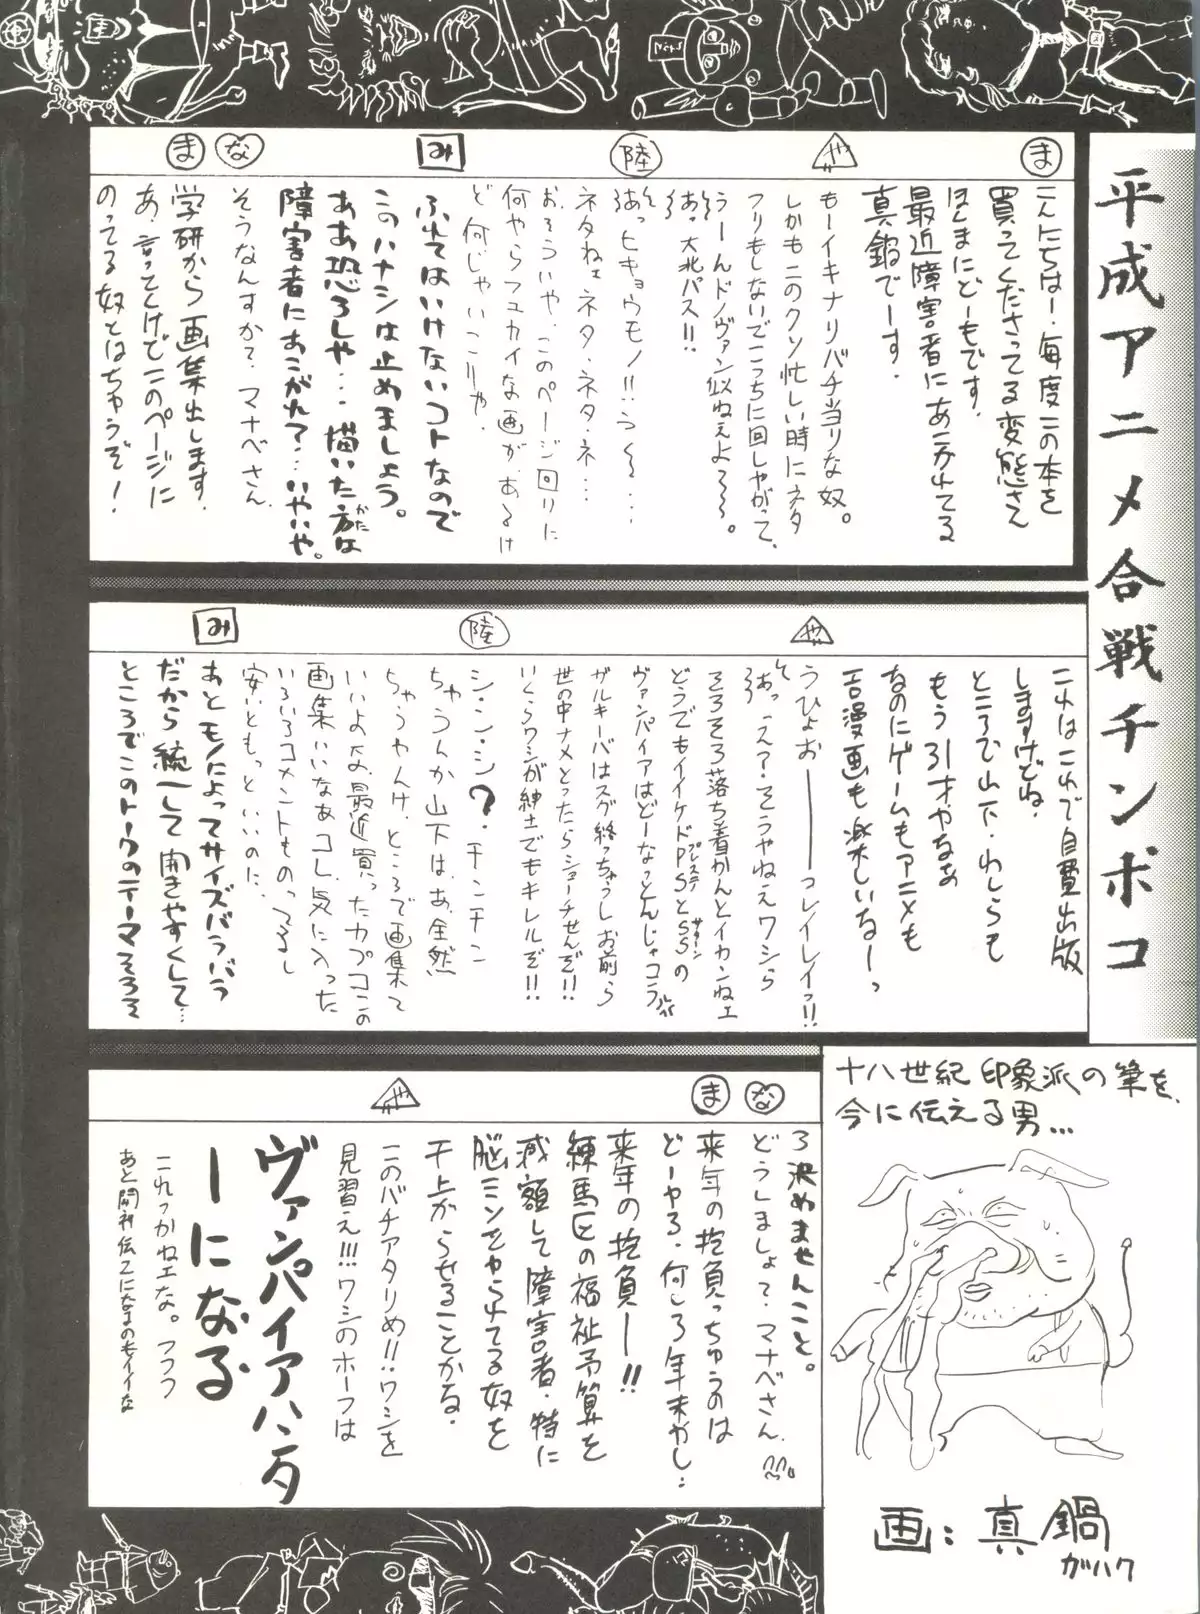 平成アニメ合戦チンポコ
ま
こんにちはー、毎度この本を
買ってくださってる変態さん
ほんまにどーもです。
最近障害者にあこがれてる
真鍋でーす。
や
もーイキナリバチ当りな奴。
しかもこのクソ忙しい時にネタ
フリもしないでこっちに回しやがって、
うーんドノヴァン似ねぇよ〜〜。
あっ大北パス!!
陸
あっヒキョウモノ!!うく〜・・・・
ネタねェネタ・ネタ・ネ・・・
お、そういや、このページ回りに
何やらフユカイな画が、あるけ
ど何じゃいこりや。
み
ふれてはいけないコトなので
このハナシは止めましょう。
ああ恐ろしや・・・描いた方は
かた
障害者にあこがれて・・・いやいや。
な
そうなんすか?マナベさん
ま
学研から画集出します。
あ、言ってくけどこのページに
のってる奴とはちゃうぞ!
これはこれで自費出版
しますけどね。
ところで山下、わしらも
もう31才やなぁ
なのにゲームもアニメも
エロ漫画も楽しいなーっ
や
うひょおーーーコレイレイっ!!
あっえ?そうやねえワシら
そろそろ落ち着かんとイカンねェ
どうでもイイケドPSとSSの
プレステ
サターン
ヴァンパイアはどーなっとんじゃコラ
ザルキーバはスグ終っちゃうしお前ら
世の中ナメとったらショーチせんぞ!!
いくらワシが紳士でもキレルぞ!!
陸
シ・ン・シ?・チンチン
ちゃうんか山下は、あ、全然
ちゃうやんけ、ところで画集て
いいよな、最近買ったカプコンの
画集いいなぁコレ、気に入った
いろいろコメントものってるし
安いともっといいのに、
み
あとモノによってサイズバラバラ
だから統一して開きやすくして…
ところでこのトークのテーマそろそ
ろ決めませんこと。
な
どうしましょて、マナベさん
ま
来年の抱負っちゅうのは
どーやろ、何しろ年末やし…
来年の抱負ー!!
練馬区の福祉予算を
減額して障害者、特に
脳ミソをやられてる奴を
干上がらせることかな。
や
このバチアタリめ!!ワシを
見習え!!!ワシのホーフは
ヴァンパイアハンタ
ーになる
これっかねェな。フフフ
十八世紀印象派の筆を、
今に伝える男…
画:真鍋
ガハク